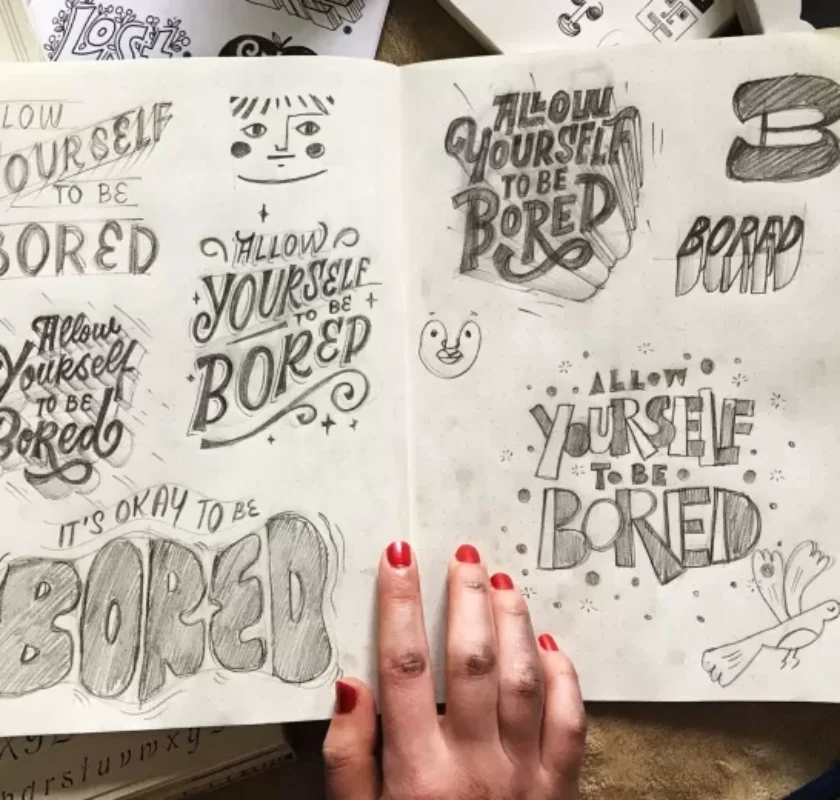 LOW
YOURSELF
TO BE
BORED
ALLOW
YOURSELF
TO BE
BORED
Allow
Yourself
TO BE
BoRed
IT'S OKAY TO BE
BORED
ALLOW
YOURSELF
TO BE
BORED
B
BORED
ALLOW
YoURSELF
To BE
BORED
rstuvwxy